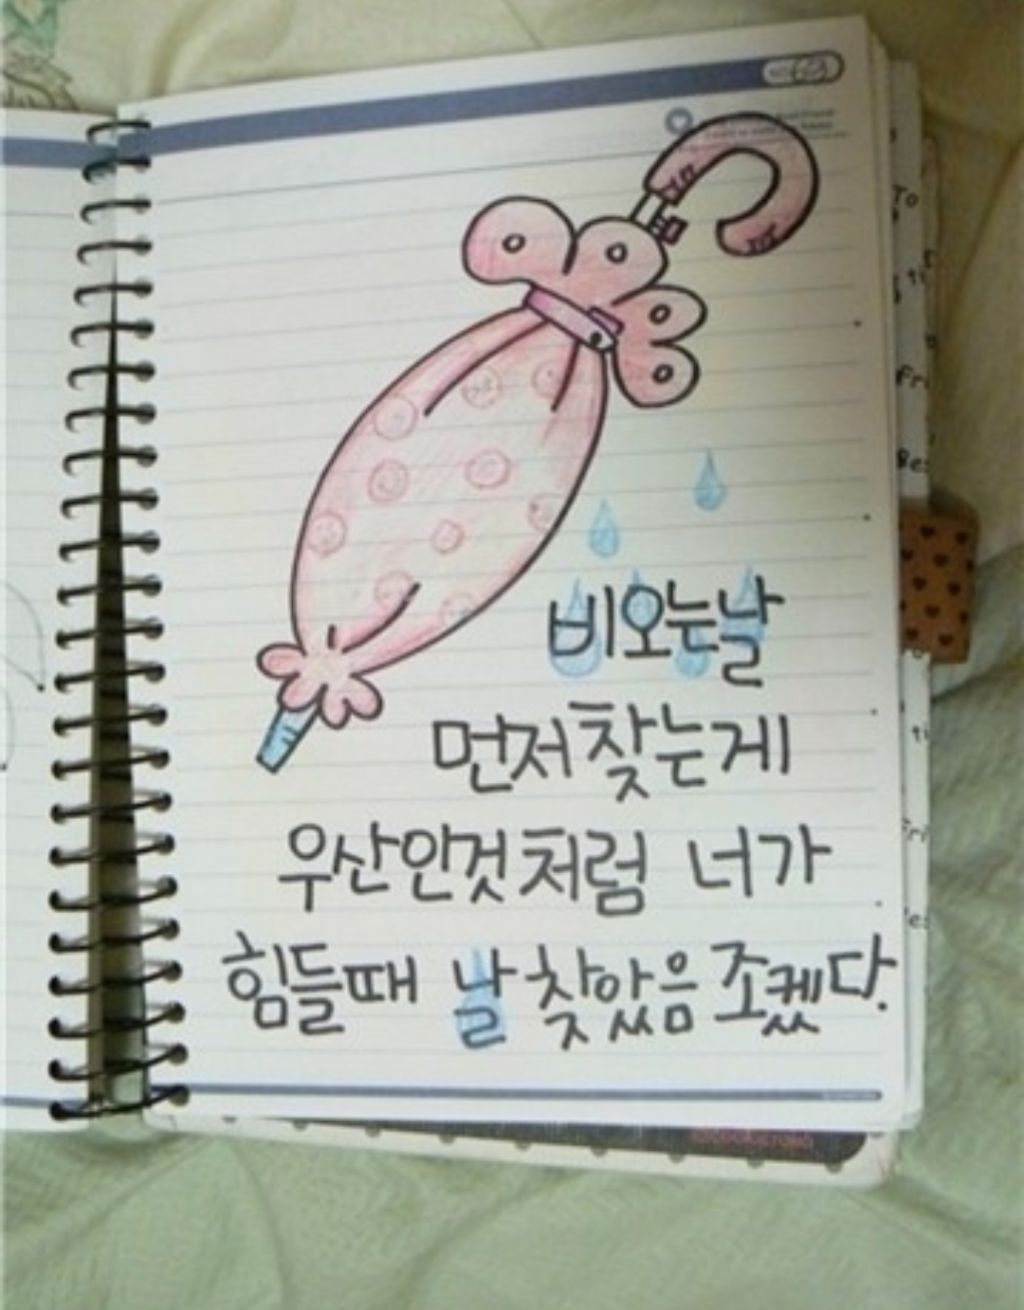 비오는날
먼저찾는게
우산인것처럼 너가
힘들때 날 찾았음 조켔다.
To
Fri